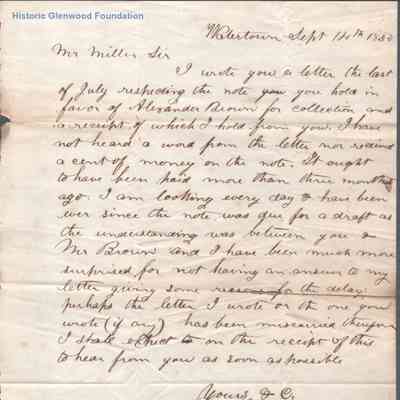 Historic Glenwood Foundation
Watertown Sept 14th
Mr Miller Sir
I wrote you a letter the last
of July respecting the note you hold in
favor of Alexander Brown for collection and
a receipt of which I hold from you. I have
not heard a word from the letter nor received
a cent of money on the note. It ought
to have been paid more than three months
ago. I am looking every day & have been
ever since the note was due for a draft as
the understanding was between you &
Mr Brown and I have been much more
surprised for not having an answer to my
letter giving some reason for the delay.
perhaps the letter I wrote or the one you
wrote (if any) has been miscarried therefore
I shall expect to on the receipt of this
to hear from you as soon as possible
Yours & C.